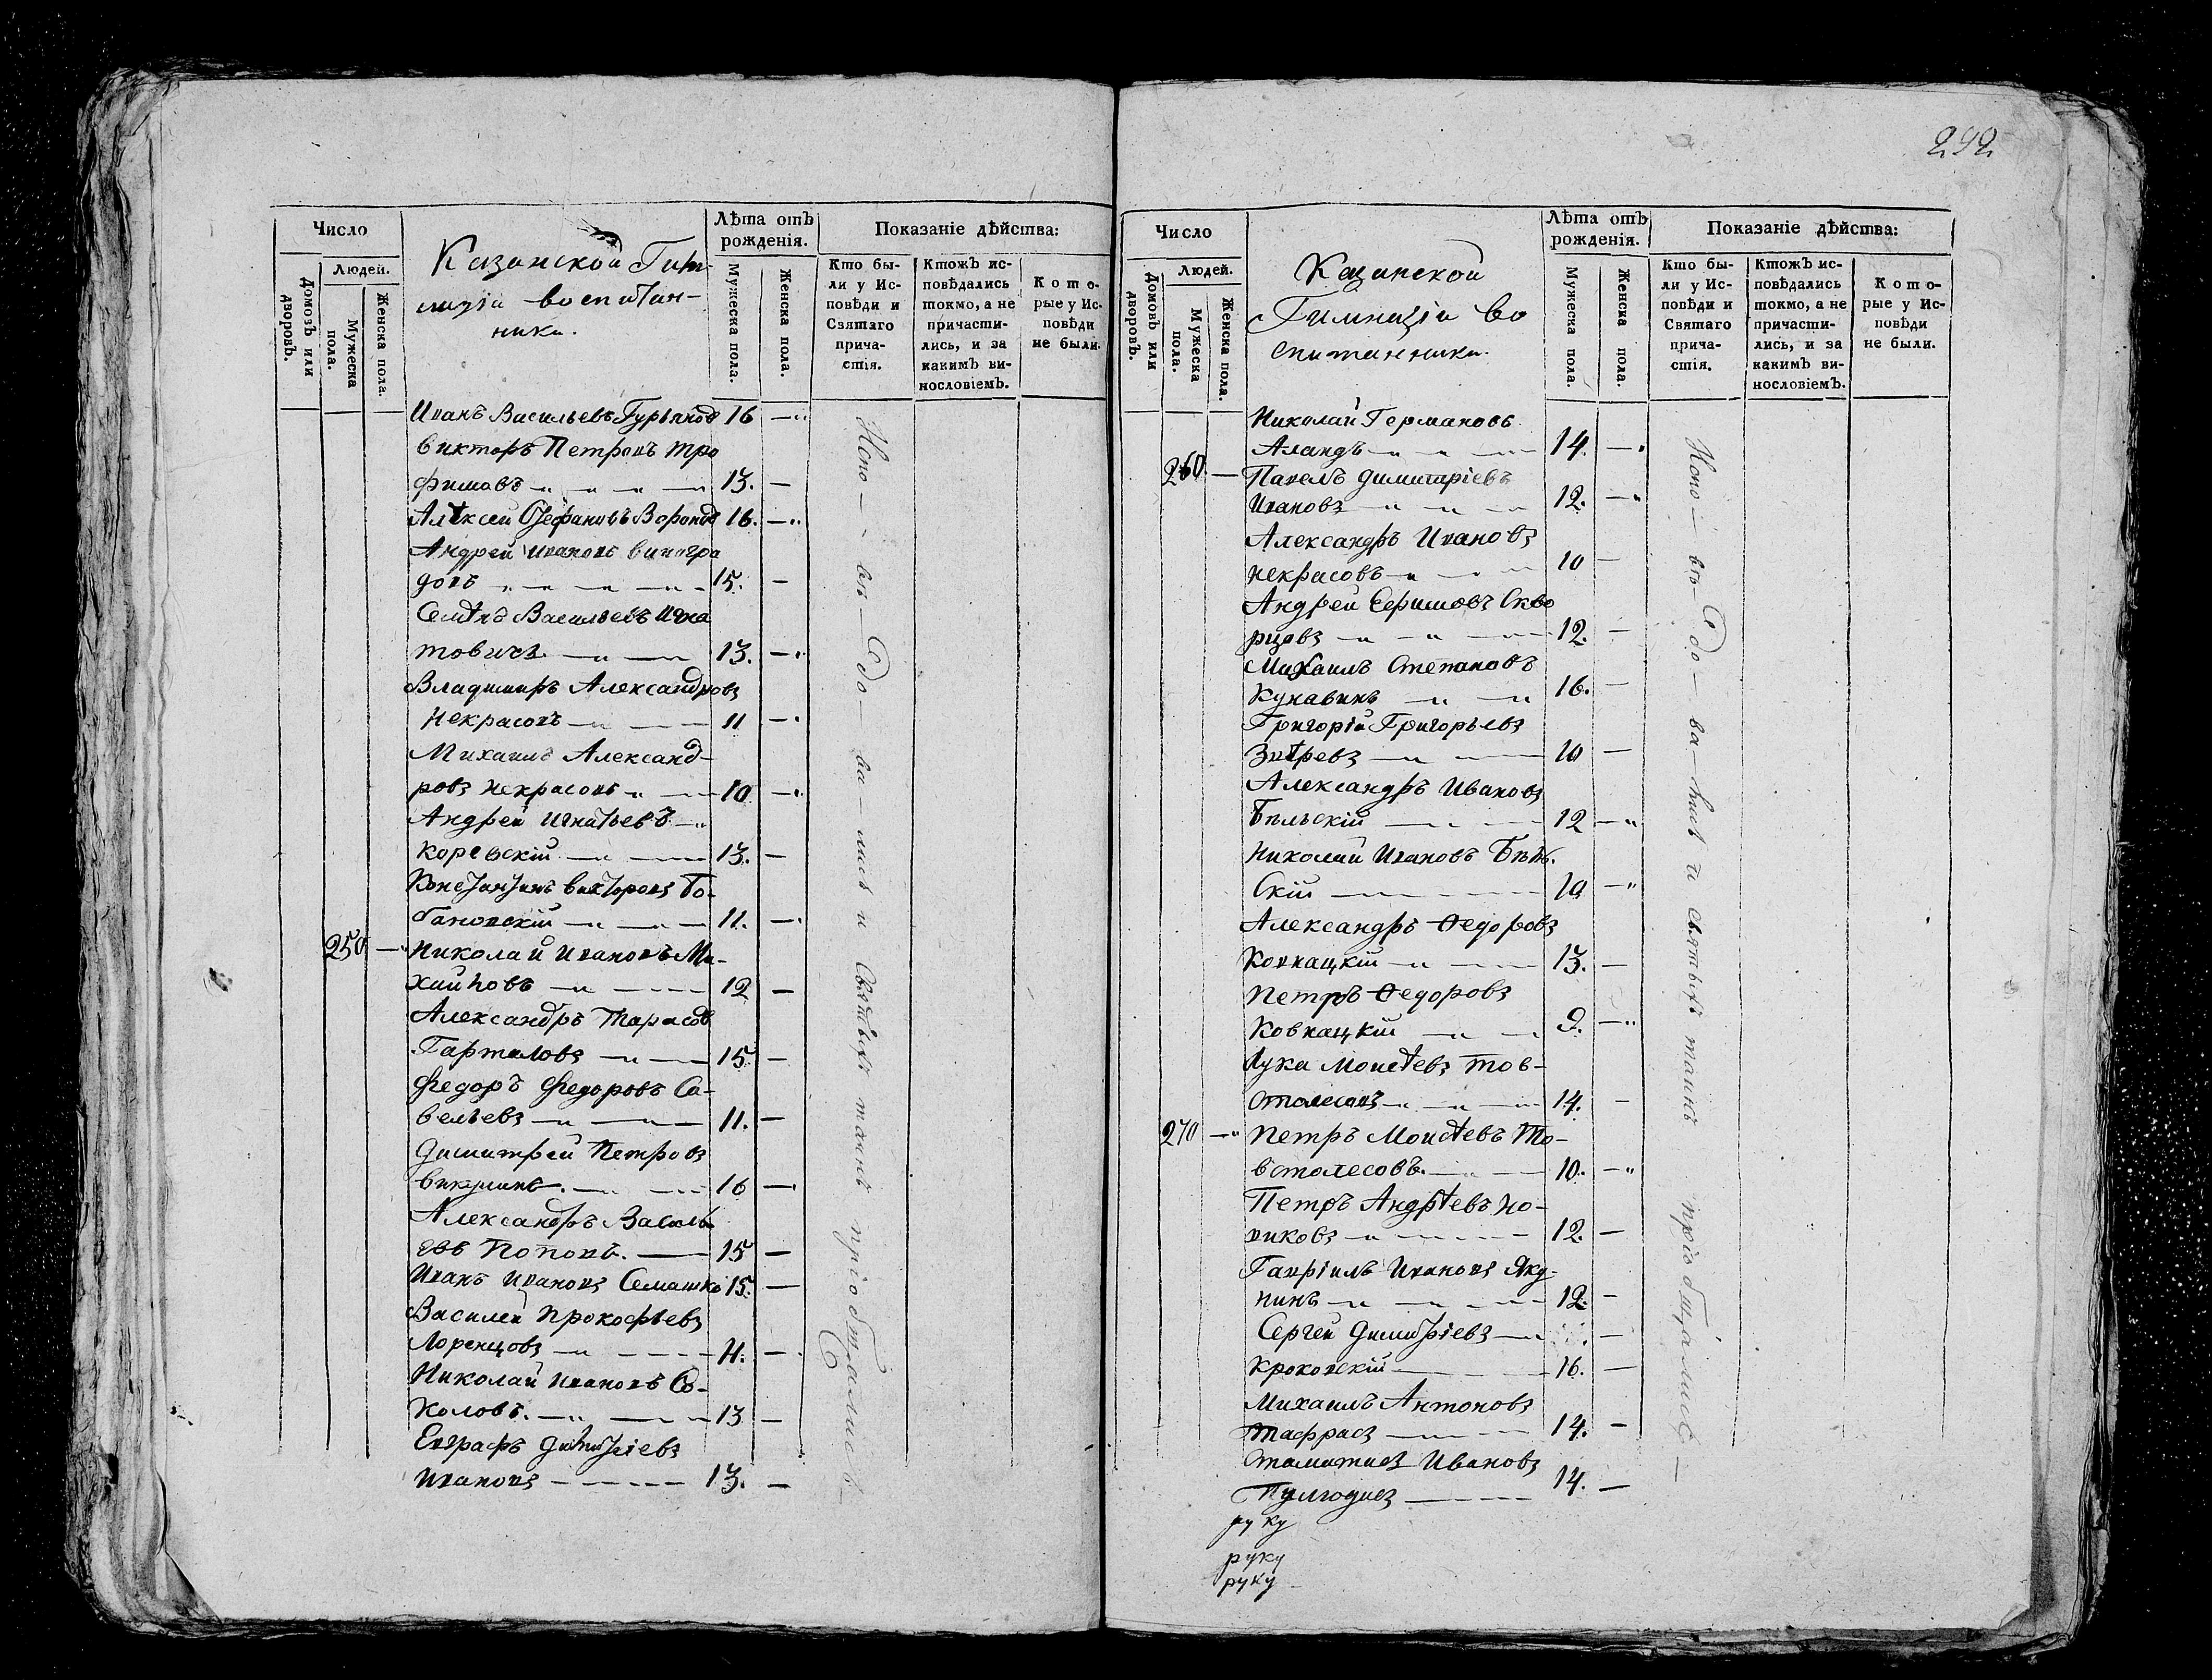 292
Число
Людей.
Домовъ или дворовъ.
Мужеска пола.
Женска пола.
Казанской Гим-
назіи воспитан-
ники.
Лѣта отъ рожденія.
Мужеска пола.
Женска пола.
Показаніе дѣйства:
Кто бы-
ли у Ис-
повѣди и
Святаго
прича-
стія.
Ктожъ ис-
повѣдались
токмо, а не
причасти-
лись, и за
какимъ ви-
нословіемъ.
Кото-
рые у Ис-
повѣди
не были.
Иванъ Васильевъ Гурьянов 16 —
Викторъ Петровъ Тро
фимовъ 13. —
Алѣксей Стефановъ Воронов 16. —
Андрей Ивановъ Виногра
довъ 15. —
Семѣнъ Васильевъ Игна
товичъ 13. —
Владимиръ Александровъ
Некрасовъ 11 —
Михаилъ Александ-
ровъ Некрасовъ 10 —
Андрей Игнатьевъ
Коревскій 13. —
Константинъ Викторовъ Бо-
гановскій 11. —
250 — Николай Ивановъ Ми-
хайловъ 12 —
Александръ Тарасов
Гарталовъ 15 —
Федоръ Федоровъ Са-
вельевъ 11. —
Димитрей Петровъ
Викулинъ 16 —
Александръ Василь
евъ Поповъ. 15 —
Иванъ Ивановъ Семашко 15. —
Василей Прокофьевъ
Лоренцовъ 11. —
Николай Ивановъ Со-
коловъ. 13 —
Евграфъ Димитріевъ
Ивановъ 13. —
Испо — вѣ — до — ва — лись и святыхъ таинъ пріобщались
Число
Людей.
Домовъ или дворовъ.
Мужеска пола.
Женска пола.
Казанской
Гимназіи во
спитанники.
Лѣта отъ рожденія.
Мужеска пола.
Женска пола.
Показаніе дѣйства:
Кто бы-
ли у Ис-
повѣди и
Святаго
прича-
стія.
Ктожъ ис-
повѣдались
токмо, а не
причасти-
лись, и за
какимъ ви-
нословіемъ.
Кото-
рые у Ис-
повѣди
не были.
Николай Германовъ
Аландъ 14. —
260. — Павелъ Димитріевъ
Ивановъ 12. —
Александръ Ивановъ
Некрасовъ 10 —
Андрей Ефимовъ Скво
рцовъ 12. —
Михаилъ Степановъ
Кунавинъ 16. —
Григорій Григорьевъ
Звѣревъ 10 —
Александръ Ивановъ
Бѣльскій 12 —
Николай Ивановъ Бѣль.
скій 10 —
Александръ Ѳедоровъ
Ковнацкій 13. —
Петръ Ѳедоровъ
Ковнацкій 9. —
Лука Моисѣевъ Тов-
столесовъ 14. —
270 — Петръ Моисѣевъ То-
встолесовъ. 10. —
Петръ Андрѣевъ Но-
виковъ 12. —
Гавріилъ Ивановъ Яку-
нинъ 12. —
Сергей Димитріевъ —
Кроковскій 16. —
Михаилъ Антоновъ
14. —
Ивановъ
14. —
руку
руку
руку
Испо — вѣ — до — ва — лись и святыхъ таинъ пріобщались —